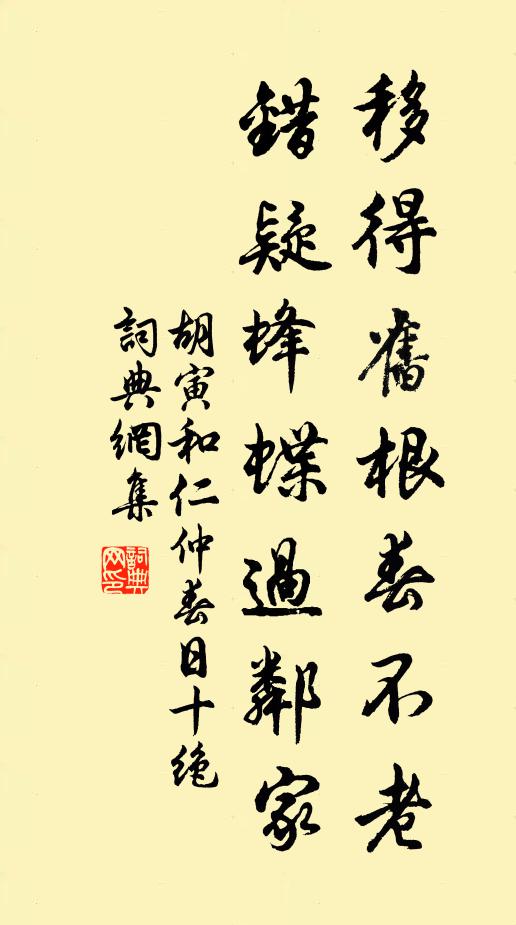 移得舊根春不老
錯疑蜂蝶過鄰家
胡寅和仁仲春日十绝
詞典網集
詞典網印